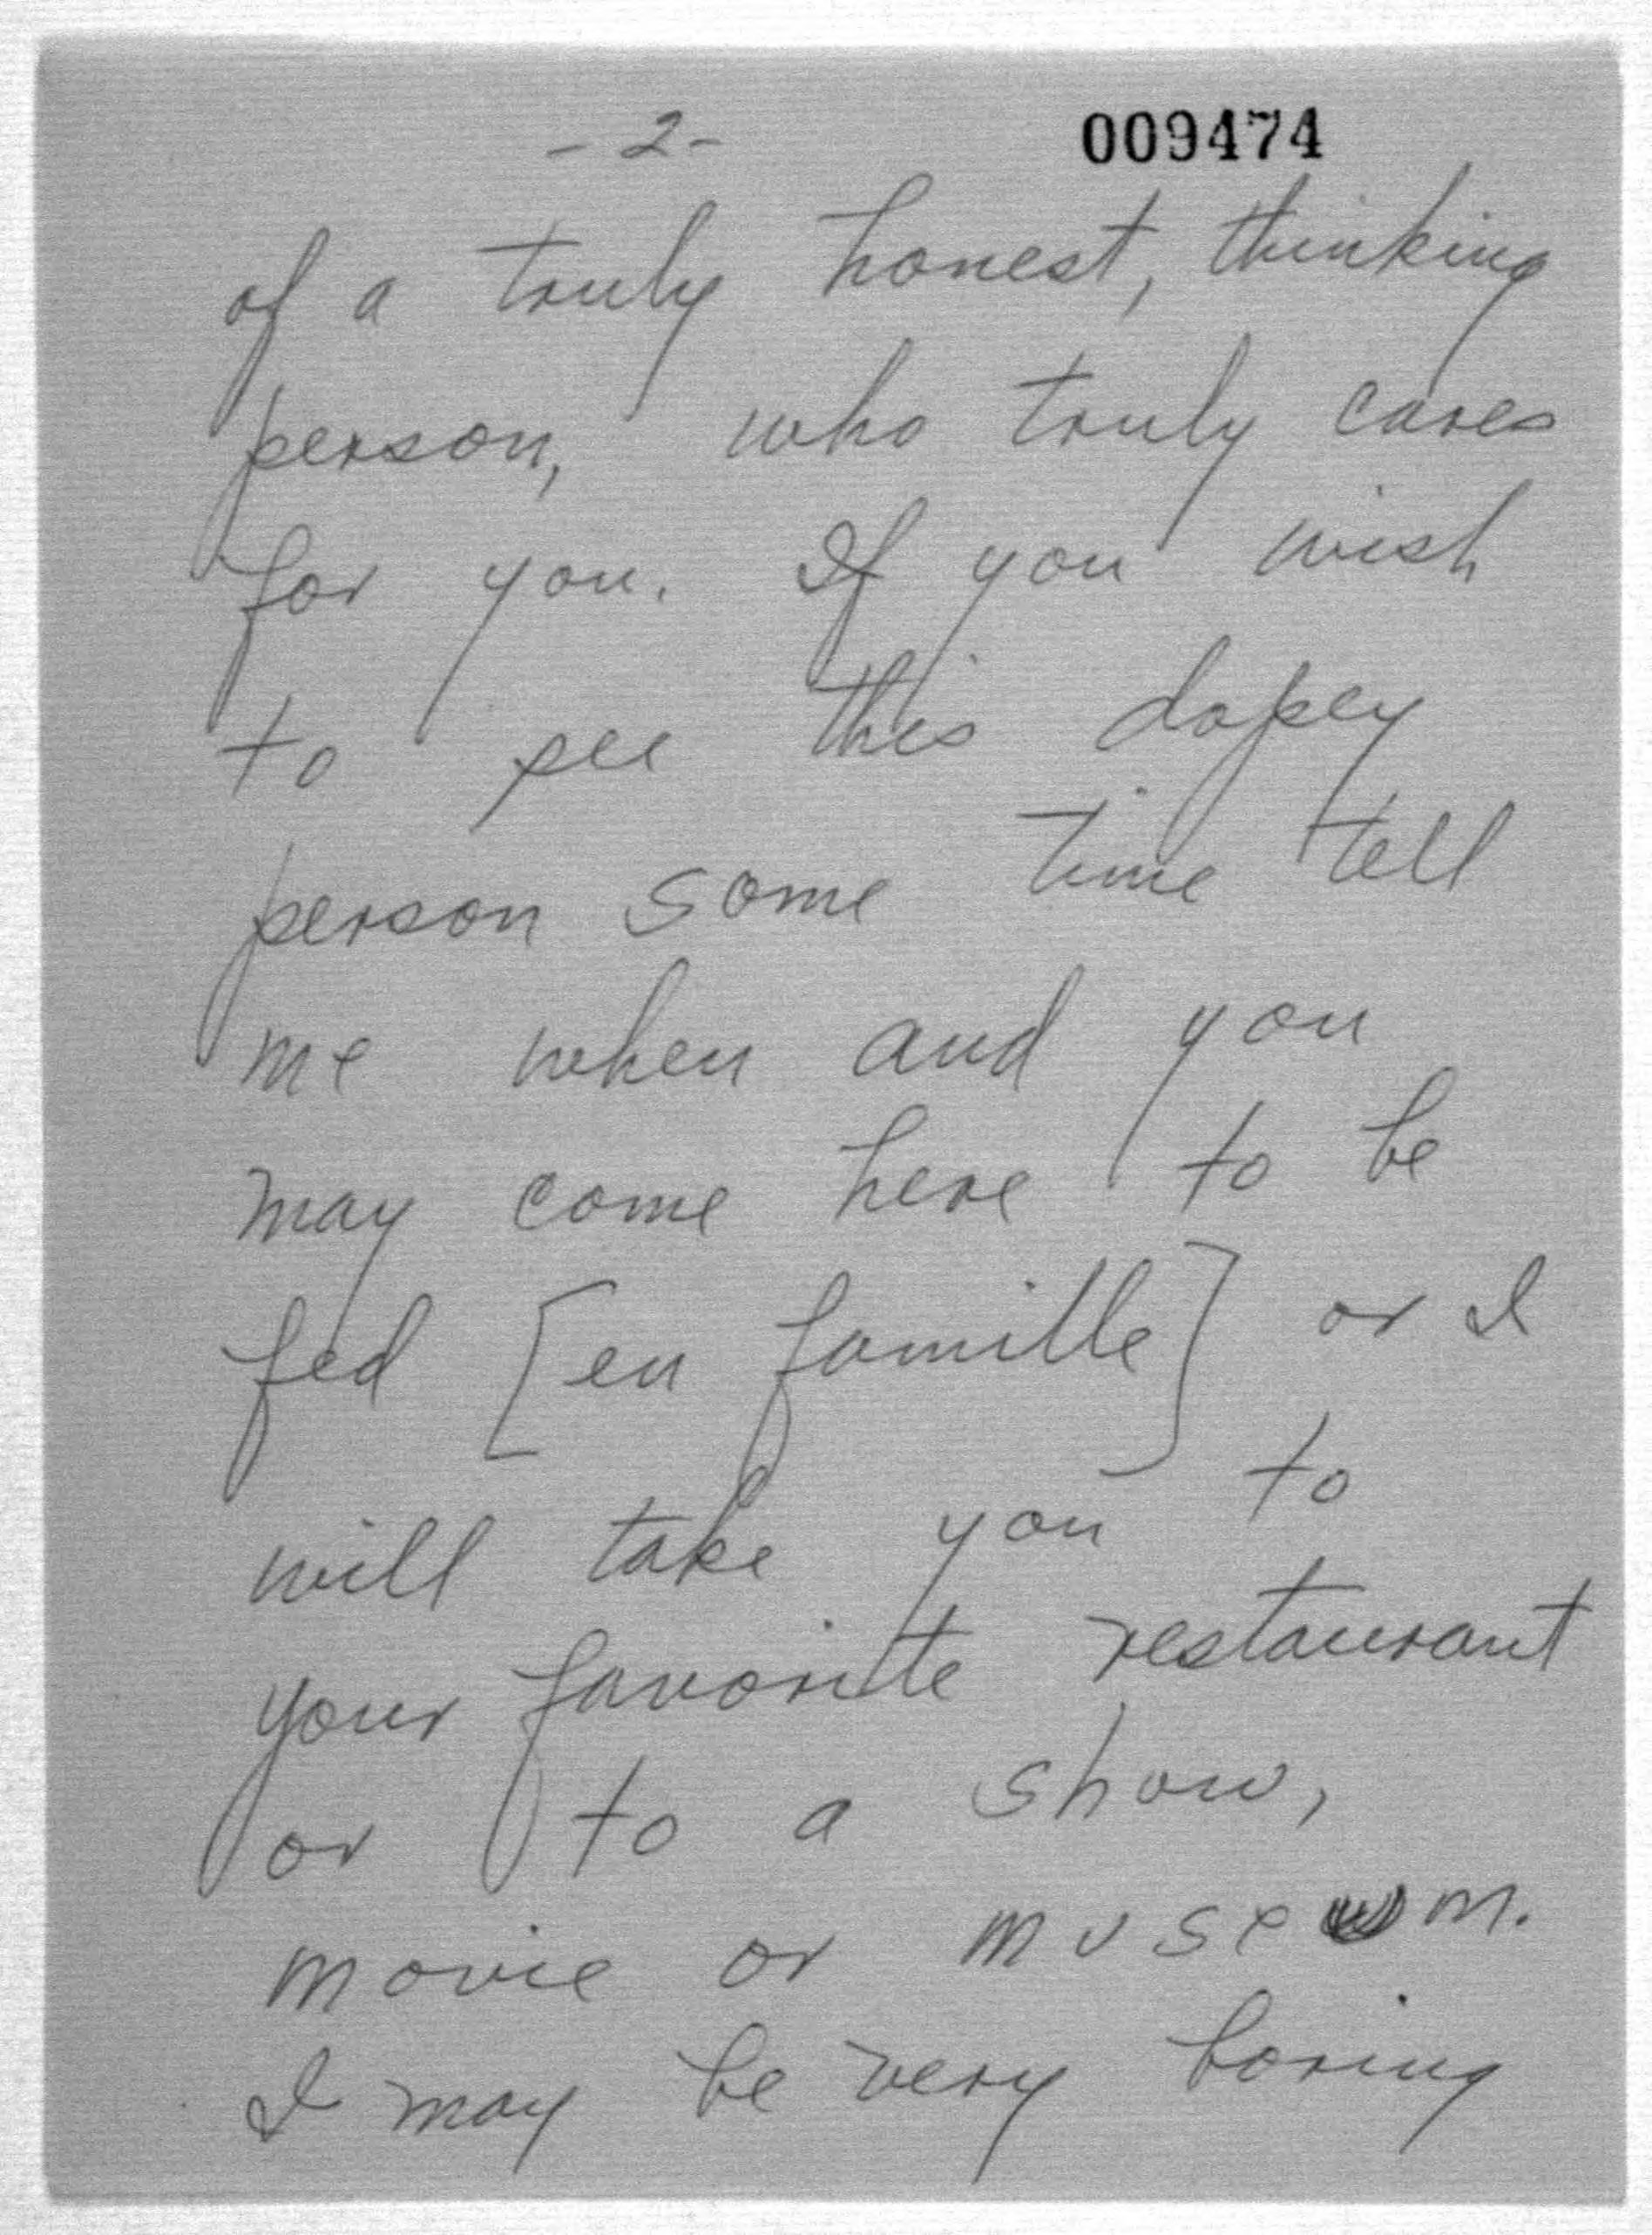 -2- 009474
of a truly honest, thinking
person, who truly cares
for you. If you wish
to see this dopey
person some time tell
me when and you
may come here to be
fed [en famille] or I
will take you to
your favorite restaurant
or to a show,
movie or museum.
I may be very boring